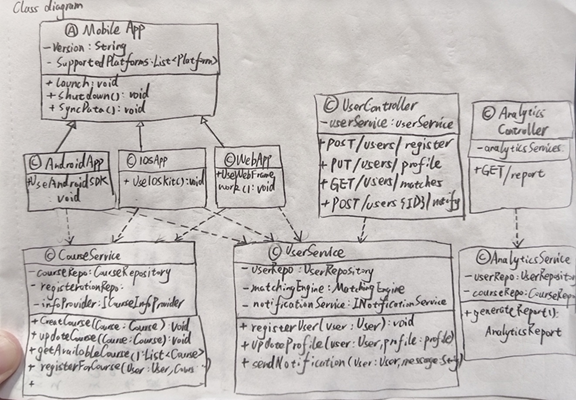 Class diagram
Ⓐ Mobile App
- Version : String
- SupportedPlatforms : List<Platform>
+ Launch : void
+ Shutdown() : void
+ SyncData() : void
Ⓒ AndroidApp
+ UseAndroidSDK
void
Ⓒ IOSApp
+ UseIOSKit() : void
Ⓒ WebApp
+ UseWebFrame
work() : void
Ⓒ UserController
- userService : userService
+ POST/users/register
+ PUT/users/profile
+ GET/users/matches
+ POST/users{ID}/notify
Ⓒ Analytics
Controller
- analyticsServices
+ GET/report
Ⓒ CourseService
- courseRepo : CourseRepository
- registerationRepo :
- infoProvider : ICourseInfoProvider
+ CreateCourse(Course : Course) void
+ updateCourse(Course : Course) void
+ getAvailableCourse() : List<Course>
+ registerForCourse(User : User, Cours
+
Ⓒ UserService
- userRepo : UserRepository
- matchingEngine : MatchingEngine
- notificationService : INotificationService
+ registerUser(user : User) : void
+ UpdateProfile(user : User, profile : profile)
+ sendNotification(User : User, message :
Ⓒ AnalyticsService
- userRepo : UserRepositor
- courseRepo : CourseRepo
+ generateReport() :
AnalyticsReport